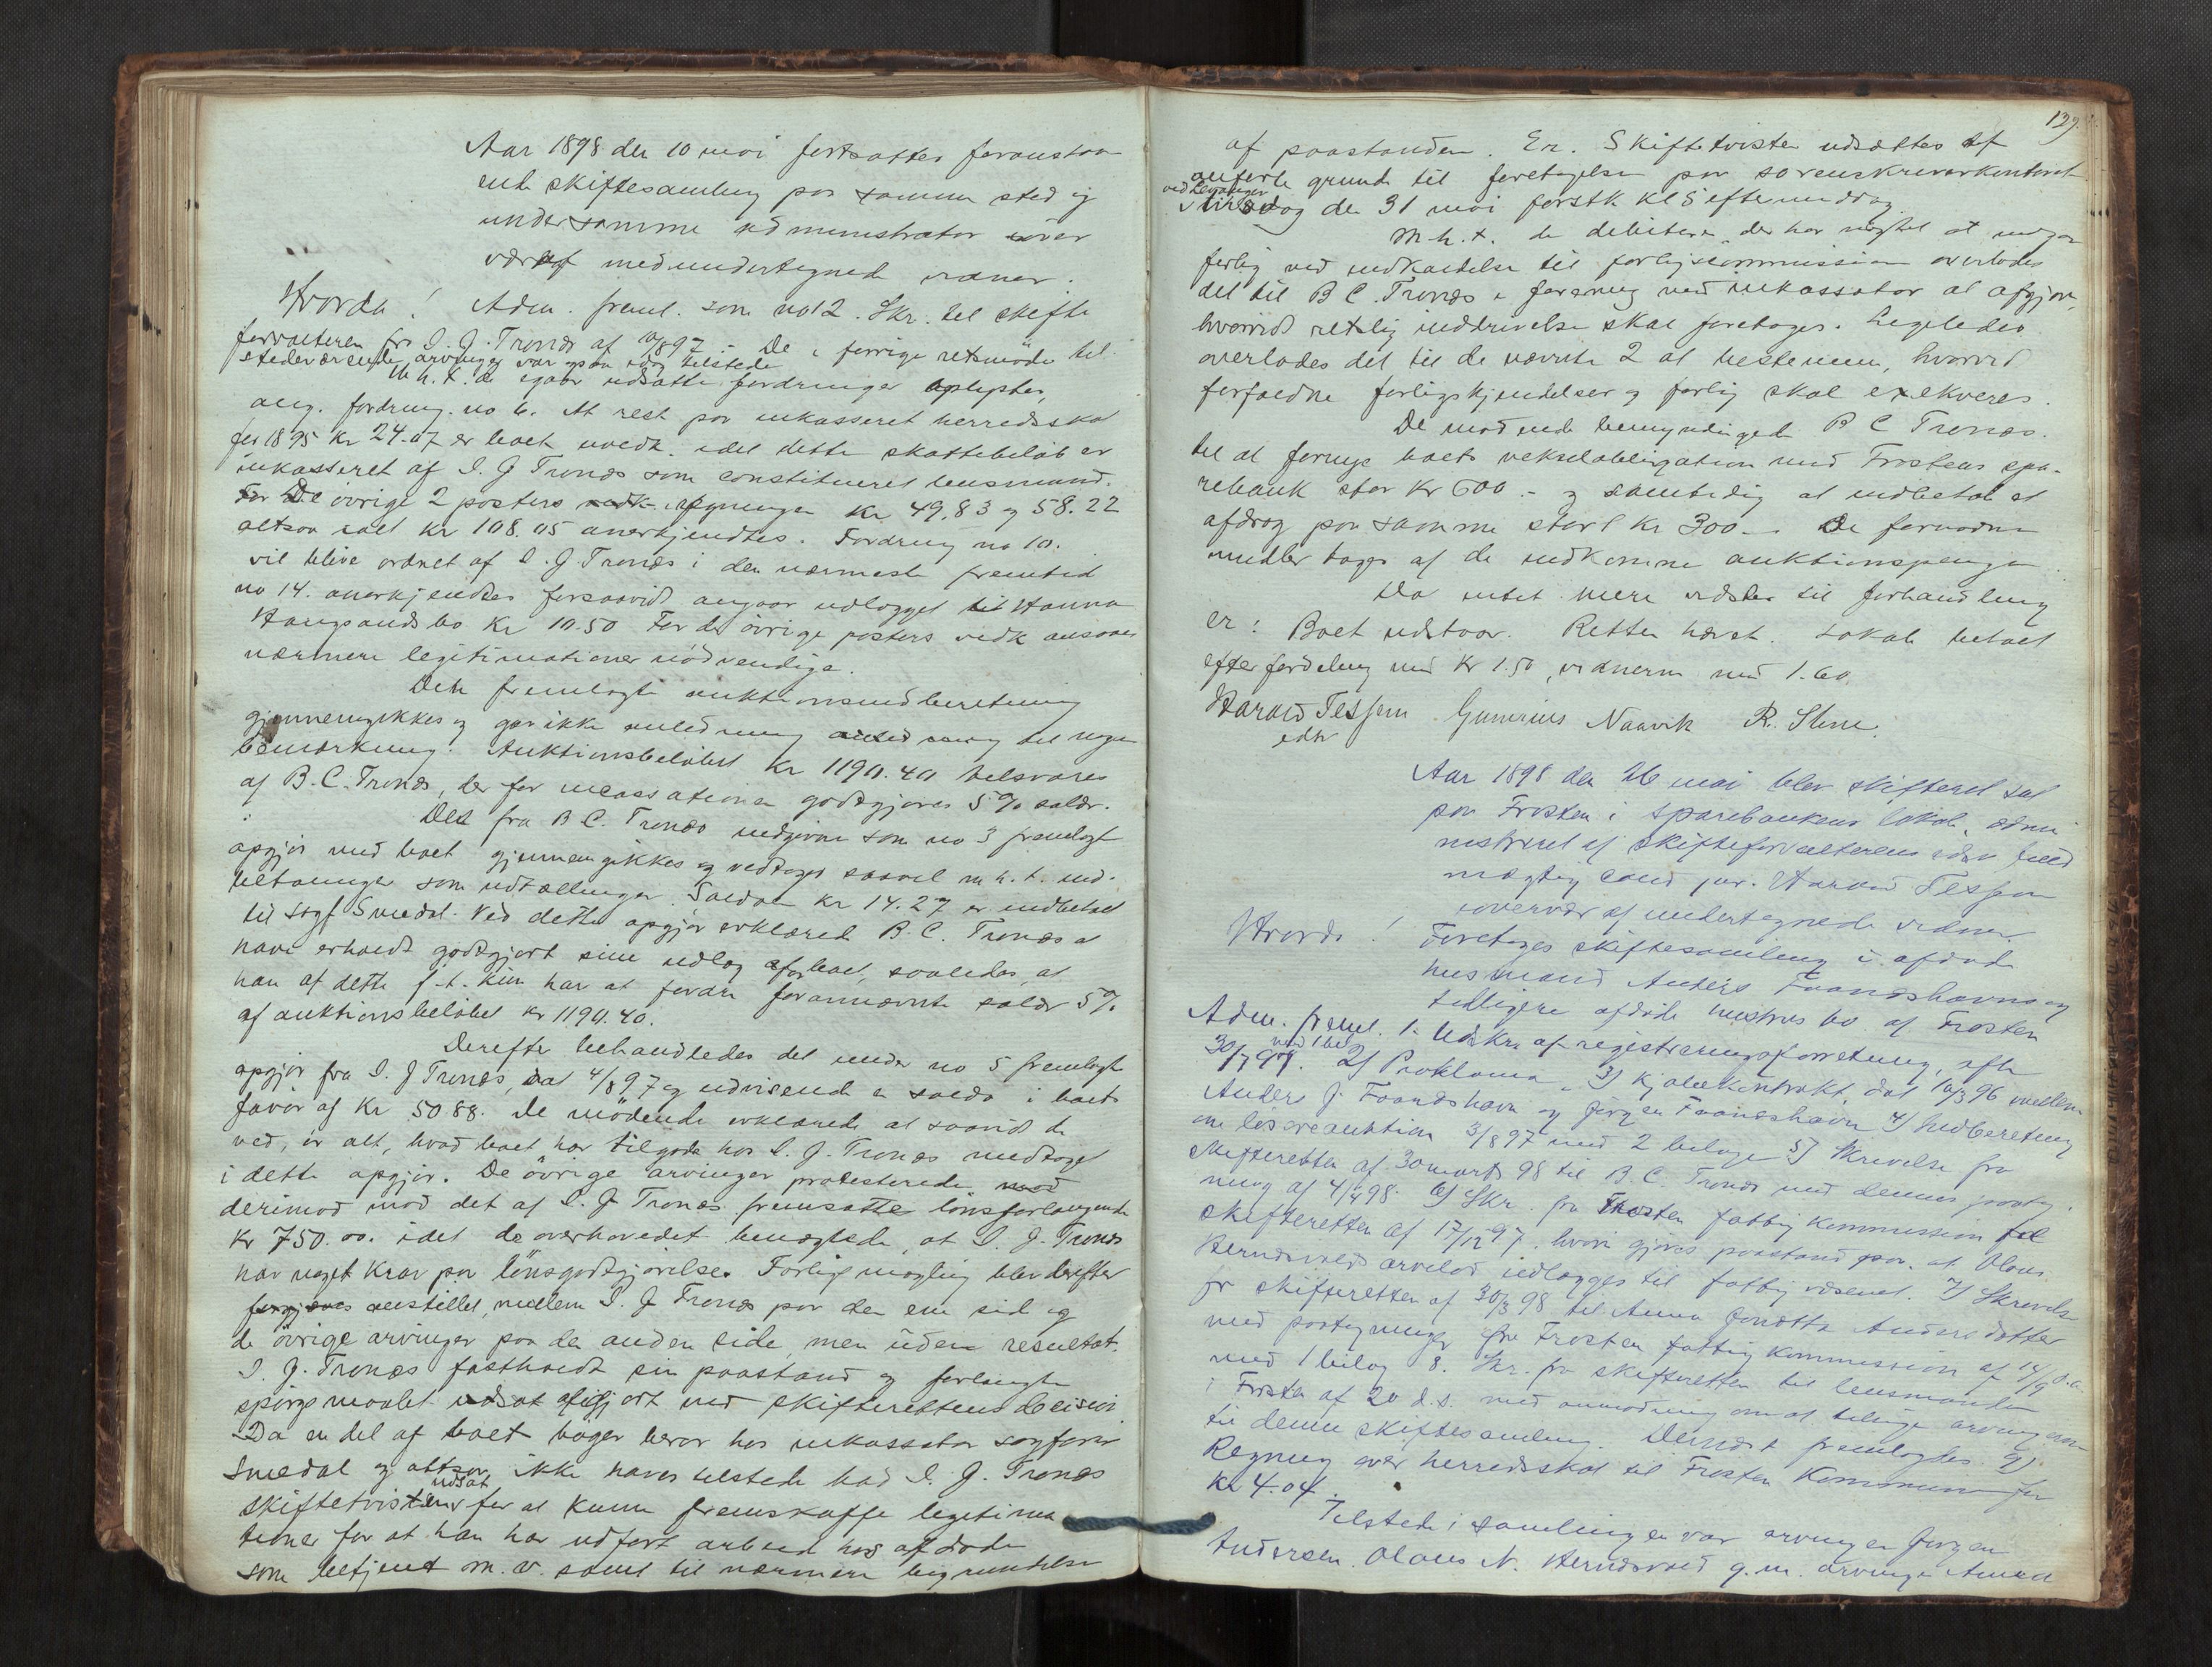 Aar 1898 den 10 mai fortsattes foranstaa-
ende skiftesamling paa samme sted og
under samme administrator over
værelse med undertegnede vidner:
Hvorda! Adm. freml. som no 12. Skr. til skifte
forvalteren fra I. J. Tronæs af 897 - De i forrige retsmöde til
stedeværende arvinger var ogsaa idag tilstede
M.h.t. de igaar udsatte fordringer oplystes,
ang. fordring no 6. At rest paa inkasseret herredsskat
for 1895 Kr 24.07 er boet uvedk. idet dette skattebelöb er
inkasseret af I. J Tronæs som constitueret lensmand.
For De övrige 2 posters vedk. regninger Kr 49,83 og 58.22
altsaa ialt Kr 108.05 anerkjendtes. Fordring no 10.
vil blive ordnet af I. J Tronæs i den nærmeste fremtid
no 14. anerkjendtes forsaavidt angaar udlægget til Hanna
Haugsands bo Kr 10.50 For de övrige posters vedk ansaaes
nærmere legitimationer nödvendige.
Den fremlagte auktionsindberetning
gjennemgikkes og gav ikke anledning til nogen
bemærkning. Auktionsbelöbet Kr 1190.40 tilsvares
af B.C. Tronæs, der for incassationen godtgjöres 5% salær.
Det fra B C. Tronæs indgivne som no 3 fremlagte
opgjör med boet gjennemgikkes og vedtoges saavel m.h.t. ind-
betalinger som udtællinger. Saldoen Kr 14.27 er indbetalt
til sagf Smedal. Ved dette opgjör erklærede B.C. Tronæs at
have erholdt godtgjort sine udlæg af boet, saaledes, at
han af dette f.t. kun har at fordre forannævnte salær 5%
af auktionsbelöbet Kr 1190.40.
Derefter behandledes det under no 5 fremlagte
opgjör fra I. J Tronæs, dat 4/8 97 og udvisende en saldo i boets
favör af Kr 50 88. De mödende erklærede at saavidt de
ved, er alt, hvad boet har tilgode hos I. J. Tronæs medtaget
i dette opgjör. De övrige arvinger protesterede
derimod mod det af I. J Tronæs fremsatte lönsforlangende
Kr 750.00. idet de overhovedet benægtede, at I. J. Tronæs
har noget Krav paa lönsgodtgjörelse. Forligsmægling blev derefter
forgjæves anstillet mellem I. J Tronæs paa den ene side og
de övrige arvinger paa den anden side, men uden resultat.
I. J. Tronæs fastholdt sin paastand og forlangte
spörgsmaalet afgjort ved skifterettens decision
Da en del af boets böger beror hos inkassator sagförer
Smedal og altsaa ikke haves tilstede bad I. J. Tronæs
udsat
skiftetvisten for at kunne fremskaffe legitima
tioner for at han har udfört arbeide hos afdöde
som betjent m. v. samt til nærmere begrundelse
129.
af paastanden. Er. Skiftetvisten udsættes af
anförte grunde til foretagelse paa sorenskriverkontoret
ved Levanger
tirsdag den 31 mai förstk Kl 5 eftermiddag.
M.h.t. de debitorer, der har nægtet at indgaa
forlig ved indkaldelse til forligscommissionen overlodes
det til B C. Tronæs i forening med inkassator at afgjöre,
hvorvidt retslig inddrivelse skal foretages. Ligeledes
overlodes det til de nævnte 2 at bestemme, hvorvidt
forfaldne forligskjendelser og forlig skal exekveres.
De mödende bemyndigede B C Tronæs.
til at fornye boets vekselobligation mod Frostens spa-
rebank stor Kr 600.- og samtidig at indbetale et
afdrag paa samme stort Kr 300.- De fornödne
midler tages af de indkomne auktionspenge.
Da intet mere idag til forhandling
er: Boet udstaar. Retten hævet. Lokale betalt
efter fordeling med Kr 1.50, vidnerne med 1.60.
Harald Tessem Gunerius Naavik R. Stene.
edsv
Aar 1898 den 26 mai blev skifteret sat
paa Frosten i Sparebankens lokale, admi
nistreret af skifteforvalterens edsv fuld
mægtig cand jur. Harald Tessem
i overvær af undertegnede vidner.
Hvorda! Foretages skiftesamling i afdöde
husmand Anders Faanæshavn og
tidligere afdöde hustrus bo af Frosten
Adm. freml. 1. Udskr. af registreringsforretning, afh
30/7 97. med 1 bilag 2) Proklama. 3) Kjøbekontrakt, dat 10/3 96 mellem
Anders J. Faanæshavn og Jörgen Faanæshavn 4) Indberetning
om lösöreauktion 3/8 97 med 2 bilage 5) Skrivelse fra
skifteretten af 30 marts 98 til B.C. Tronæs med dennes paateg-
ning af 4/4 98. 6) Skr. fra Frosten fattigkommission til
skifteretten af 17/12 97, hvori gjöres paastand paa, at Olaus
Berndsvolds arvelod udlægges til fattigvæsenet. 7) Skrivelse
fr skifteretten af 30/3 98 til Anna Jonetta Andersdatter
med paategninger fra Frosten fattigkommission af 14/9 d.a.
med 1 bilag 8. Skr. fra skifteretten til lensmanden
i Frosten af 20 d.s. med anmodning om at tilsige arvingerne
til denne skiftesamling. Dernæst fremlagdes 9)
Regning over herredsskat til Frosten Kommune for
Kr 4.04.
Tilstede i samlingen var arvingen Jörgen
Andersen. Olaus N. Berndsvold g.m. arvinge Anna